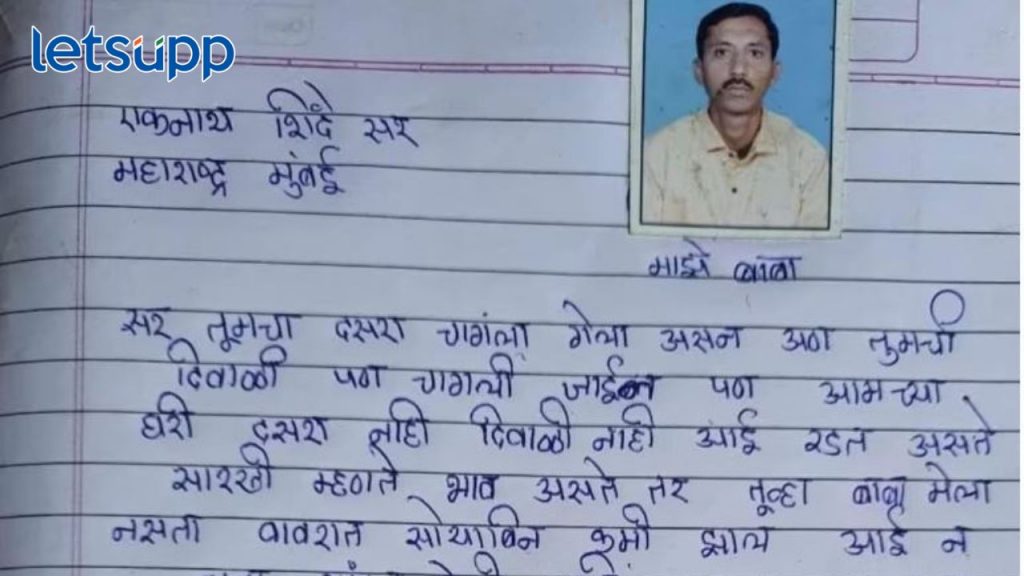 letsupp
एकनाथ शिंदे सर
महाराष्ट्र मुंबई
माझे बाबा
सर तूमचा दसरा चागंला गेला असन अण तुमची
दिवाळी पण चागली जाईल पण आमच्या
घरी दसरा नाही दिवाळी नाही आई रडत असते
सारखी म्हणते भाव असते तर तूव्हा बाबा मेला
नसता वावरात सोयाबिन कमी झाल आई न